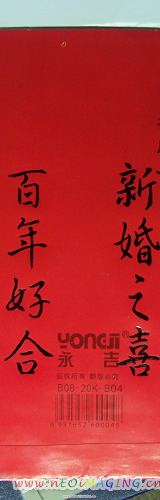 新婚之喜
百年好合
YONGJI®
永吉
版权所有 翻版必究
B08-20K-B04
www.NEOIMAGING.cn